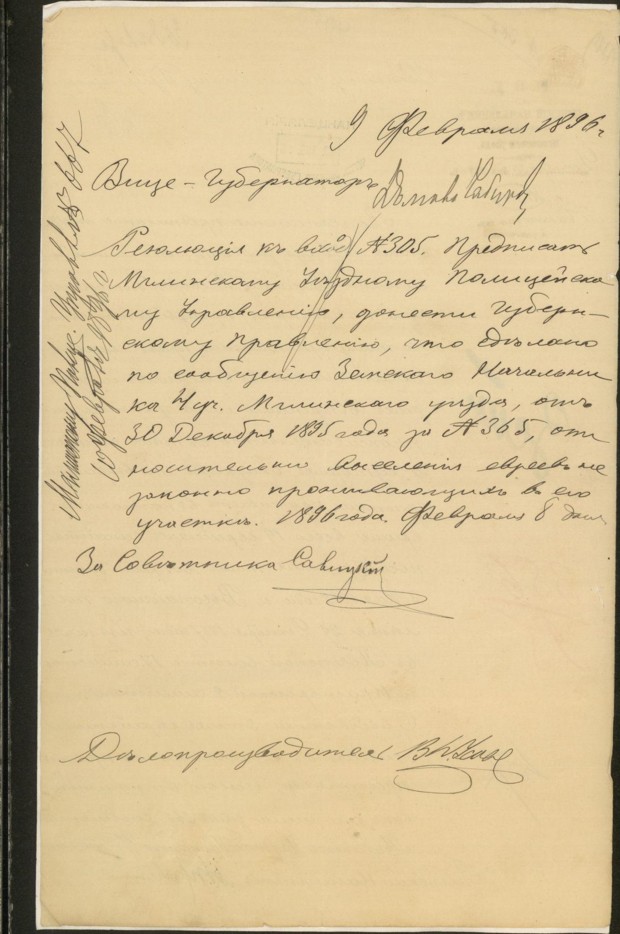 9 Февраля 1896 г
Вице-Губернаторъ
Резолюція къ вход № 305. Предписать
Мглинскому Уѣздному Полицейско
му Управленію, донести Губерн-
скому Правленію, что сдѣлано
по сообщенію Земскаго Начальни
ка 4 уч. Мглинскаго уѣзда, отъ
30 Декабря 1895 года за № 365, отн
носительно выселенія евреевъ не
законно проживающихъ въ его
участкѣ. 1896 года. Февраля 8 дня
За Совѣтника Савицкій
Дѣлопроизводитель
Мглинскому Полиц. Управл
10 февраля 1896 г